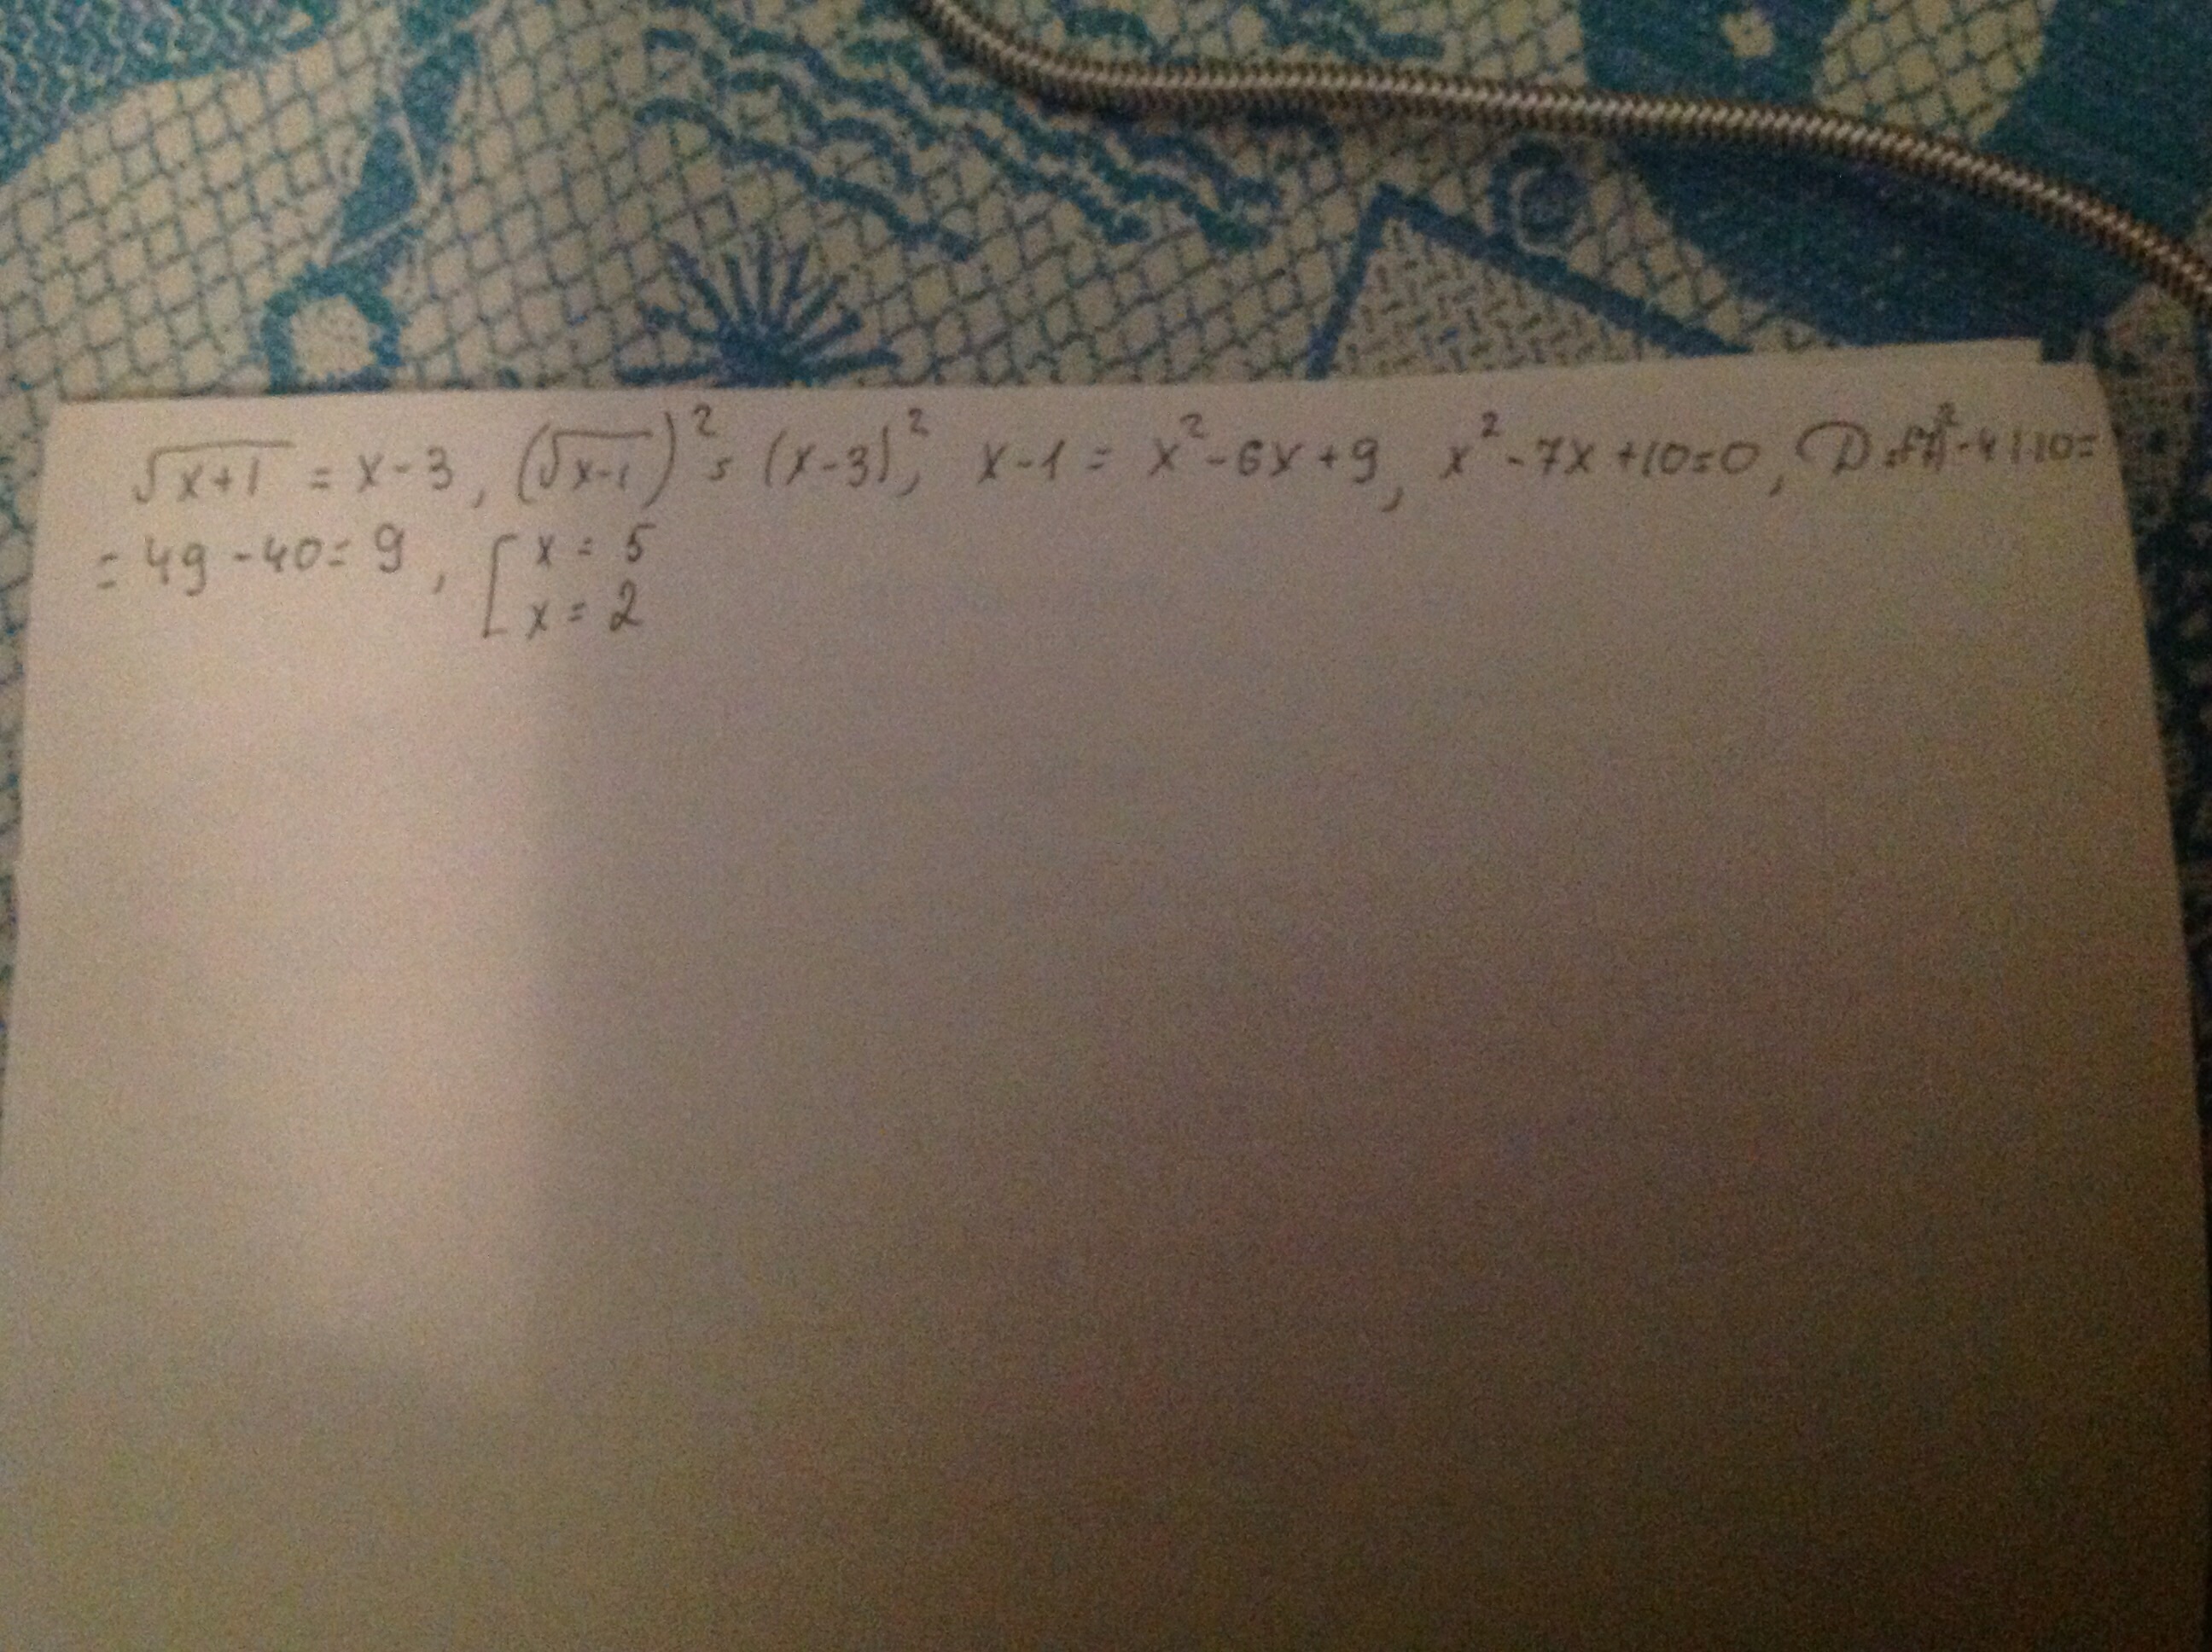 √(x+1) = x-3, (√(x-1))² = (x-3)², x-1 = x²-6x+9, x²-7x+10=0, D=(-7)²-4·1·10=
= 49-40=9, [x=5
x=2